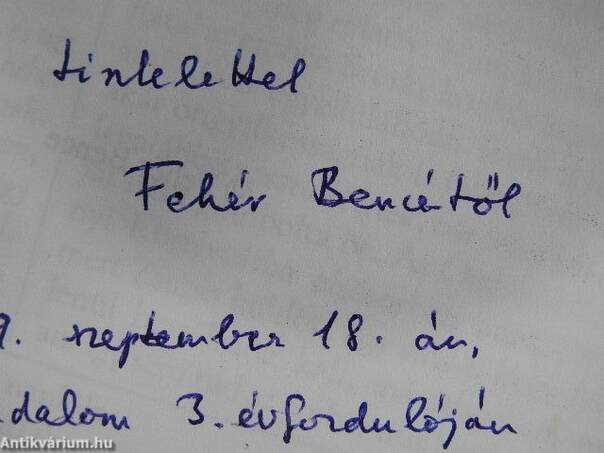 tisztelettel
Fehér Bencétől
9. szeptember 18.-án,
dalom 3. évfordulóján
Antikvárium.hu